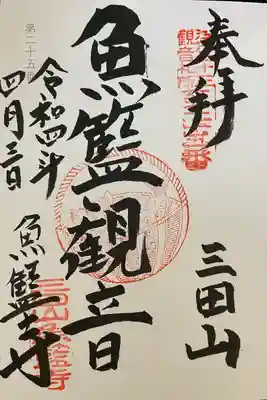 奉拝
三田山
魚籃観音
第二十五
令和四年
四月三日
魚籃寺